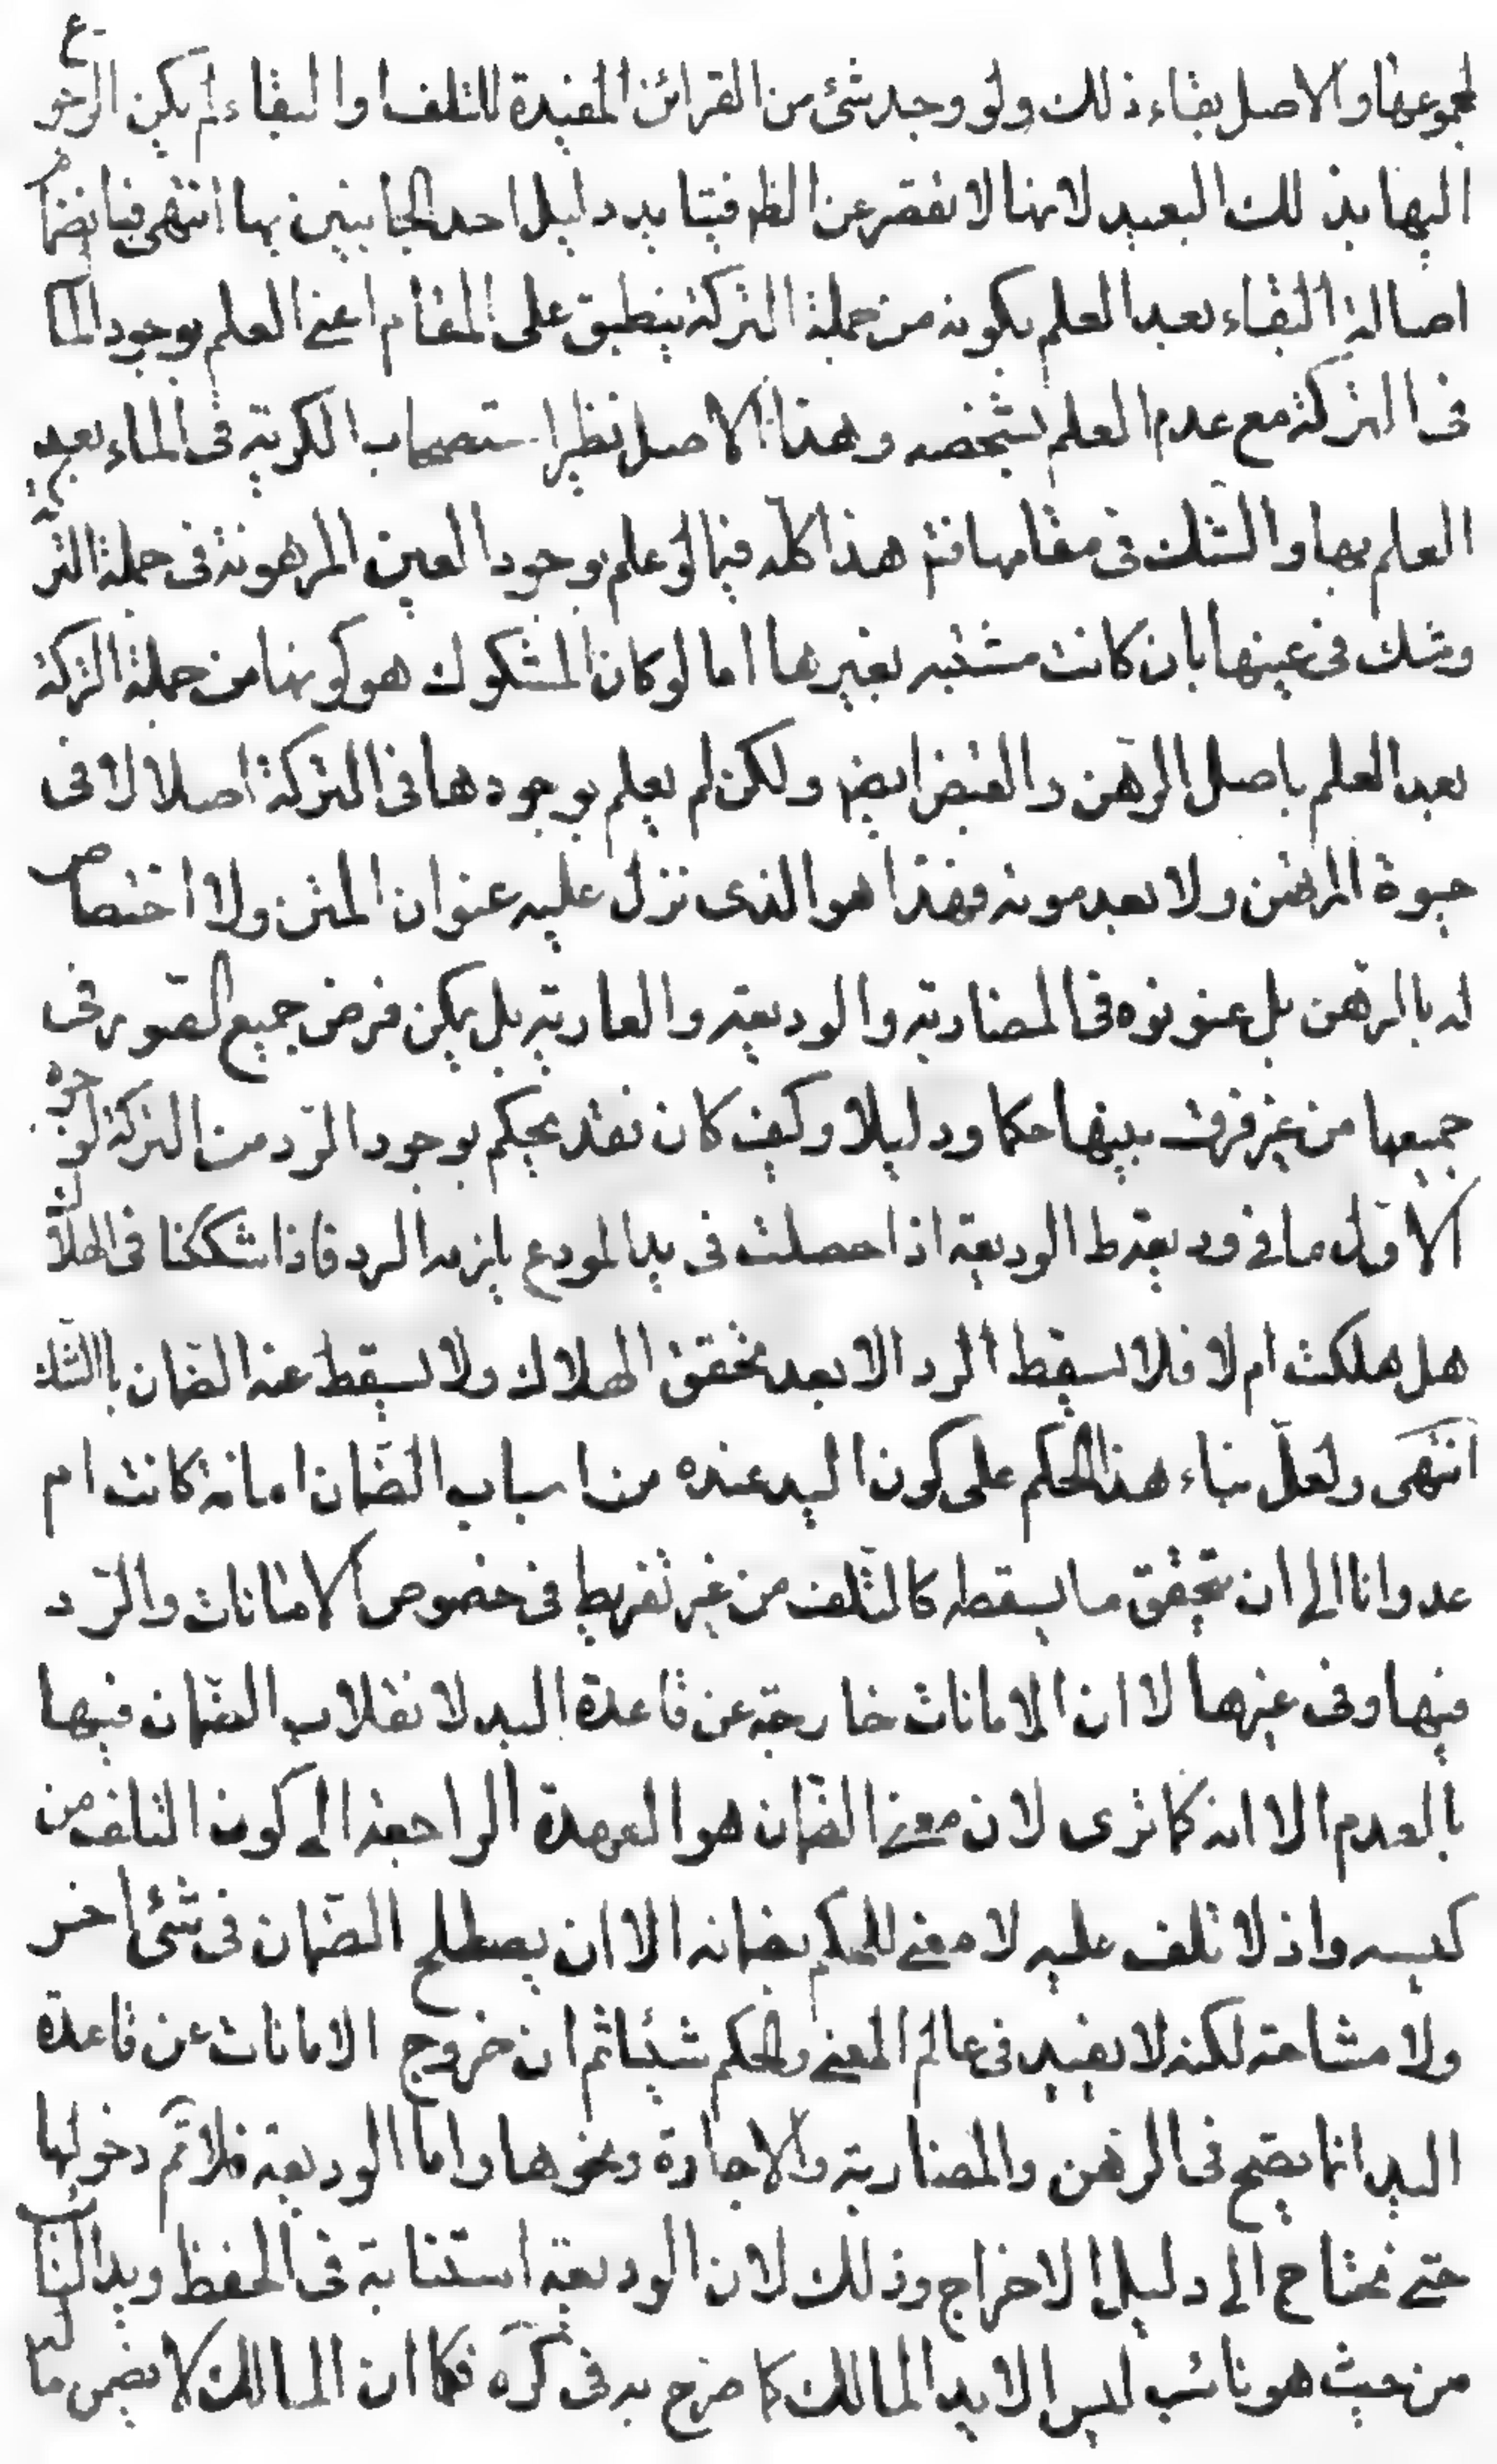 لمجموعها والاصل بقاء ذلك ولو وجد شئ من القرائن المفيدة للتلف او البقاء لم يكن الرجوع
اليها بذلك البعيد لانها لا تقصر عن الظاهر فيتايد دليل احد الجانبين بها انتهى فبانضمام
اصالة البقاء بعد العلم بكونه من جملة التركة ينطبق على المقام اعنى العلم بوجود المال
فى التركة مع عدم العلم بشخصه وهذا الاصل نظير استصحاب الكرية فى الماء بعد
العلم بها والشك فى مقامها فتم هذا كله فيما لو علم بوجود العين المرهونة فى جملة التركة
وشك فى عينها بان كانت مشتبه بغيرها اما لو كان المشكوك هو كونها من جملة التركة
بعد العلم باصل الرهن والقبض ايضا ولكن لم يعلم بوجودها فى التركة اصلا لا فى
حيوة المرتهن ولا بعد موته فهذا هو الذى نزل عليه عنوان المتن ولا اختصاص
له بالرهن بل عنونوه فى المضاربة والوديعة والعارية بل يكن فرض جميع الصور فى
جميعها من غير فرق بينها حكما ودليلا وكيف كان فقد يحكم بوجود الرد من التركة لوجوه
الاول ما فى وديعة ط الوديعة اذا حصلت فى يد المودع يلزمه الرد فاذا شككنا فى الهلاك
هل هلكت ام لا فلا يسقط الرد الا بعد تحقق الهلاك ولا يسقط عنه الضمان بالشك
انتهى ولعل بناء هذا الحكم على كون اليد عنده من اسباب الضمان امانة كانت ام
عدوانا الى ان يتحقق ما يسقطه كالتلف من غير تفريط فى خصوص الامانات والرد
فيها وفى غيرها لا ان الامانات خارجة عن قاعدة اليد لانقلاب الضمان فيها
بالعدم الا انه كما ترى لان معنى الضمان هو العهدة الراجعة الى كون التلف من
كيسه واذ لا تلف عليه لا معنى للحكم بضمانه الا ان يصطلح الضمان فى شئ اخر
ولا مشاحة لكنه لا يفيد فى عالم المعنى والحكم شيئا ثم ان خروج الامانات عن قاعدة
اليد انما يصح فى الرهن والمضاربة والاجارة ونحوها واما الوديعة فلا تم دخولها
حتى نحتاج الى دليل الاخراج وذلك لان الوديعة استنابة فى الحفظ ويد النائب
من حيث هو نائب ليس الا يد المالك كما صرح به فى كره فكما ان المالك لا يضمن ماله